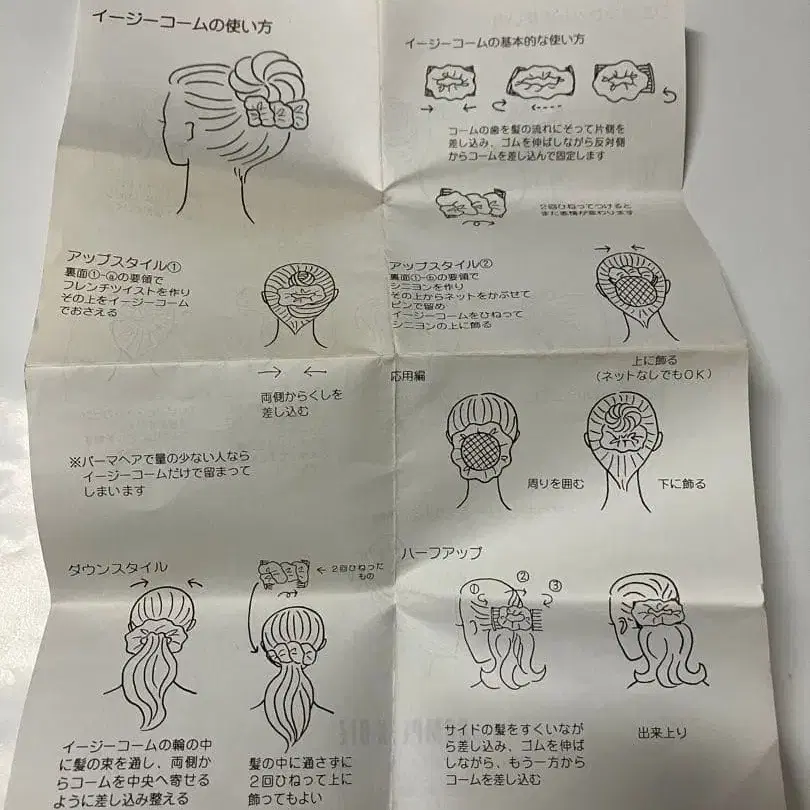 イージーコームの使い方
イージーコームの基本的な使い方
コームの歯を髪の流れにそって片側を
差し込み、ゴムを伸ばしながら反対側
からコームを差し込んで固定します
2回ひねってつけると
また表情が変わります
アップスタイル①
裏面①-ⓐの要領で
フレンチツイストを作り
その上をイージーコーム
でおさえる
両側からくしを
差し込む
※パーマヘアで量の少ない人なら
イージーコームだけで留まって
しまいます
アップスタイル②
裏面①-ⓑの要領で
シニヨンを作り
その上からネットをかぶせて
ピンで留め
イージーコームをひねって
シニヨンの上に飾る
上に飾る
(ネットなしでもOK)
応用編
周りを囲む
下に飾る
ダウンスタイル
2回ひねった
もの
イージーコームの輪の中
に髪の束を通し、両側か
らコームを中央へ寄せる
ように差し込み整える
髪の中に通さずに
2回ひねって上に
飾ってもよい
ハーフアップ
①
②
③
サイドの髪をすくいなが
ら差し込み、ゴムを伸ば
しながら、もう一方から
コームを差し込む
出来上り